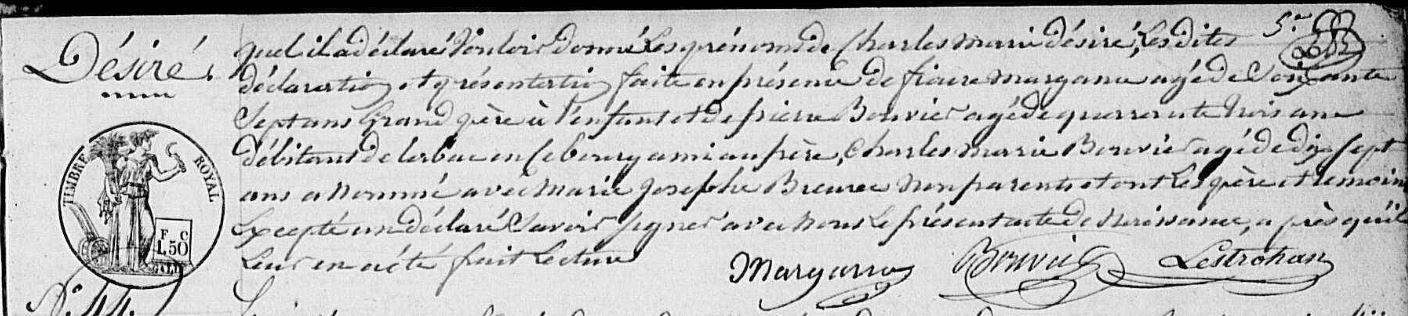 5e
Désiré,
quel il a déclaré Vouloir donné les prénoms de Charles Marie désiré, Les dites
déclaration et présentation faite en présence de pierre marganne agé de Soixante
Sept ans Grand père à l'enfant et de pierre Bouvier agé de quarrante trois ans
débitant de tabac en ce bourg ami au père, Charles Marie Bouvier agé de dix Sept
ans a Nommé avec Marie Josephe Non parents et ont Les père et temoins
Excepté un déclaré Savoir Signer avec nous Le présent acte de Naissance, après qu'il
Leur en a été fait Lecture
TIMBRE ROYAL
F. C
1.50
Bouvier
Lestrohan
N° 44.